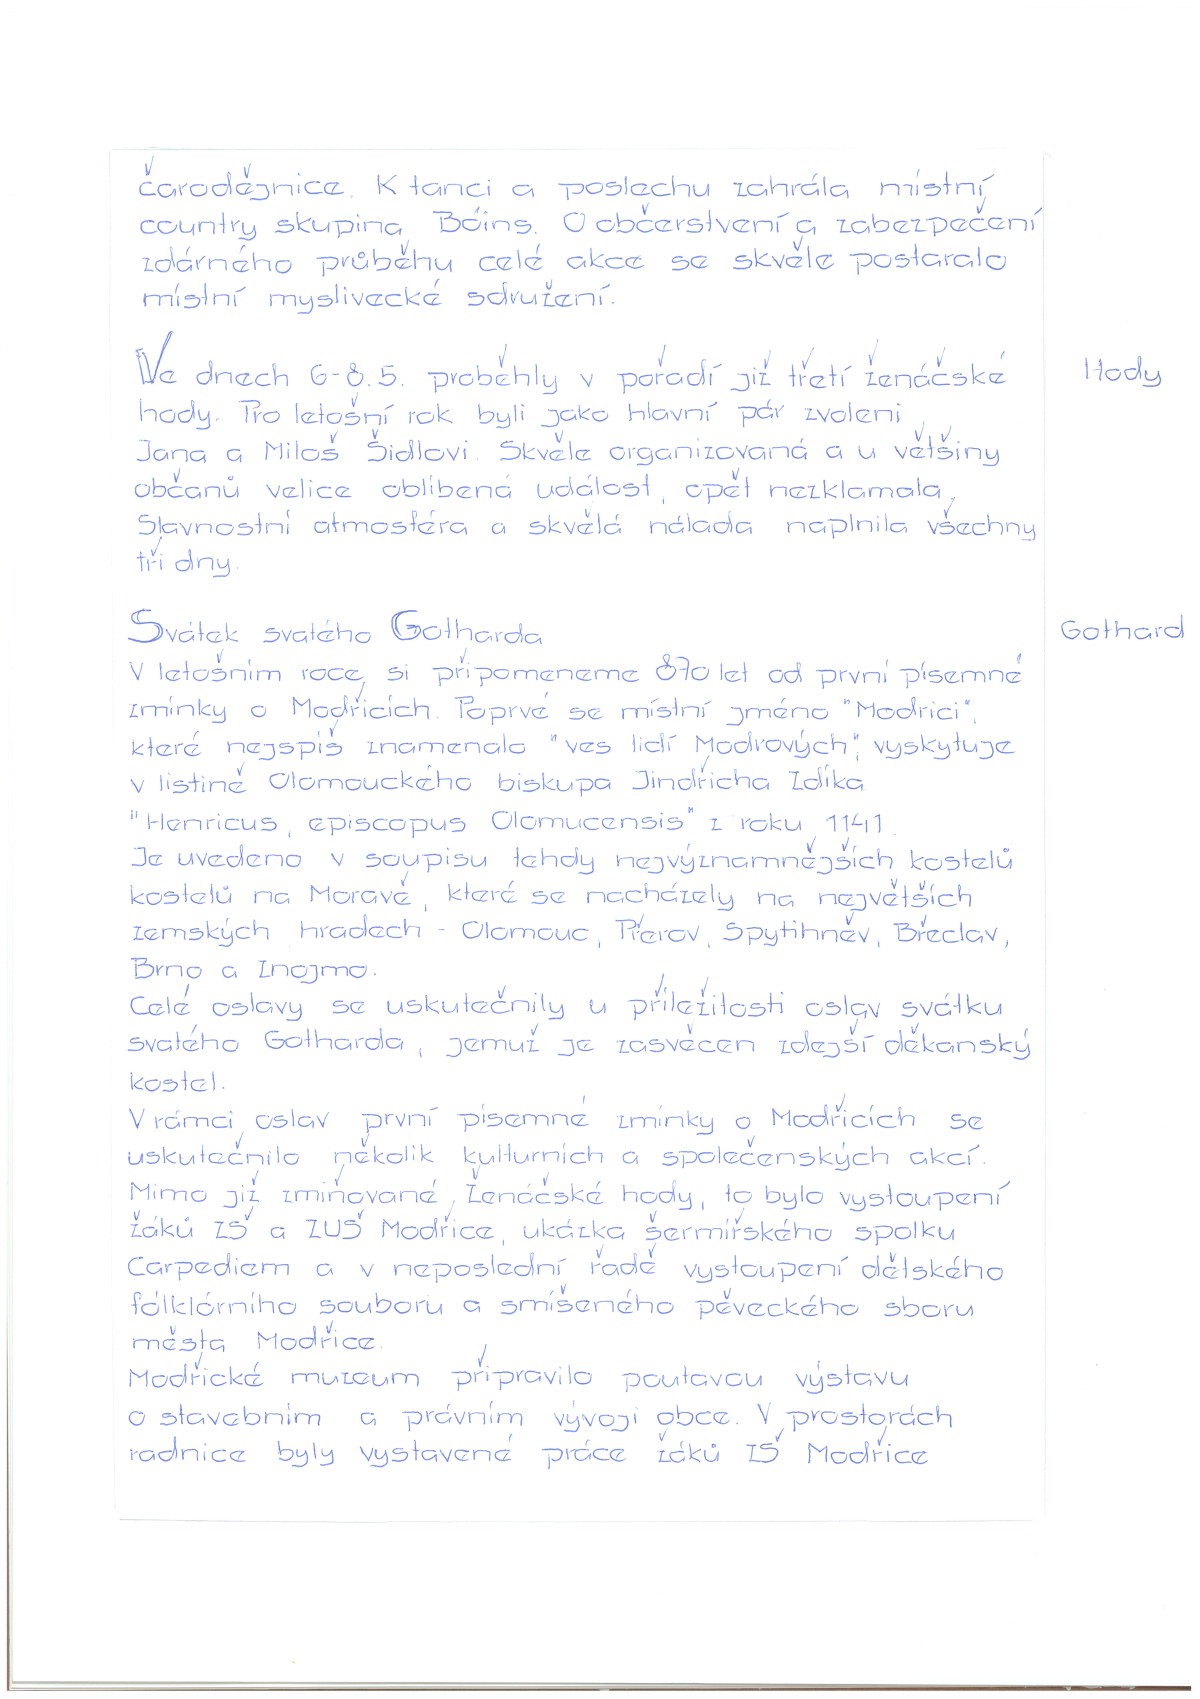 čarodějnice. K tanci a poslechu zahrála místní
country skupina Bóins. O občerstvení a zabezpečení
zdárného průběhu celé akce se skvěle postaralo
místní myslivecké sdružení.
Ve dnech 6-8.5. proběhly v pořadí již třetí ženáčské
Hody
hody. Pro letošní rok byli jako hlavní pár zvoleni
Jana a Miloš Šidlovi. Skvěle organizovaná a u většiny
občanů velice oblíbená událost, opět nezklamala,
Slavnostní atmosféra a skvělá nálada naplnila všechny
tři dny.
Svátek svatého Gotharda
Gothard
V letošním roce si připomeneme 870 let od první písemné
zmínky o Modřicích. Poprvé se místní jméno "Modrici",
které nejspíš znamenalo "ves lidí Modrových", vyskytuje
v listině Olomouckého biskupa Jindřicha Zdíka
"Henricus, episcopus Olomucensis" z roku 1141.
Je uvedeno v soupisu tehdy nejvýznamnějších kostelů
kostelů na Moravě, které se nacházely na největších
zemských hradech - Olomouc, Přerov, Spytihněv, Břeclav,
Brno a Znojmo.
Celé oslavy se uskutečnily u příležitosti oslav svátku
svatého Gotharda, jemuž je zasvěcen zdejší děkanský
kostel.
V rámci oslav první písemné zmínky o Modřicích se
uskutečnilo několik kulturních a společenských akcí.
Mimo již zmiňované Ženáčské hody, to bylo vystoupení
žáků ZŠ a ZUŠ Modřice, ukázka šermířského spolku
Carpediem a v neposlední řadě vystoupení dětského
fólklórního souboru a smíšeného pěveckého sboru
města Modřice.
Modřické muzeum připravilo poutavou výstavu
o stavebním a právním vývoji obce. V prostorách
radnice byly vystavené práce žáků ZŠ Modřice